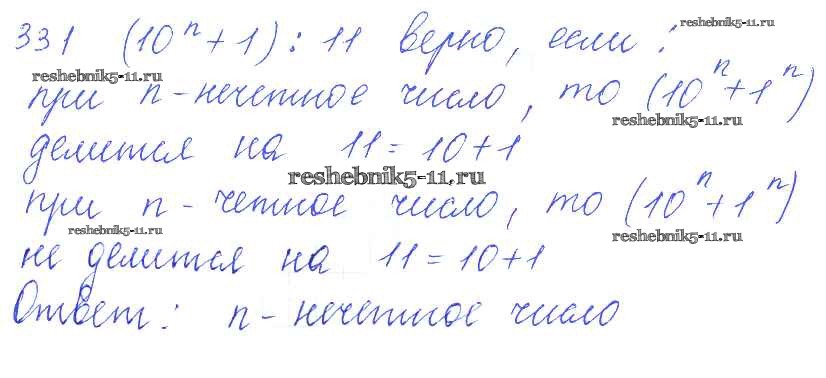 reshebnik5-11.ru
331 (10ⁿ + 1) : 11 верно, если :
reshebnik5-11.ru
при n - нечетное число, то (10ⁿ + 1ⁿ)
reshebnik5-11.ru
делится на 11 = 10 + 1
reshebnik5-11.ru
при n - четное число, то (10ⁿ + 1ⁿ)
reshebnik5-11.ru
reshebnik5-11.ru
не делится на 11 = 10 + 1
Ответ : n - нечетное число